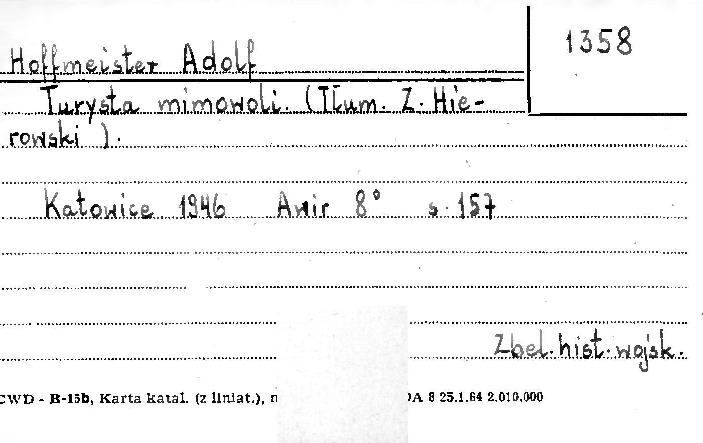 Hoffmeister Adolf
1358
Turysta mimowoli. (Tłum. Z. Hie-
rowski ).
Katowice 1946 Awir 8° s. 157
Zbel. hist. wojsk.
CWD - B-15b, Karta katal. (z liniat.), DA 8 25.1.64 2.010.000